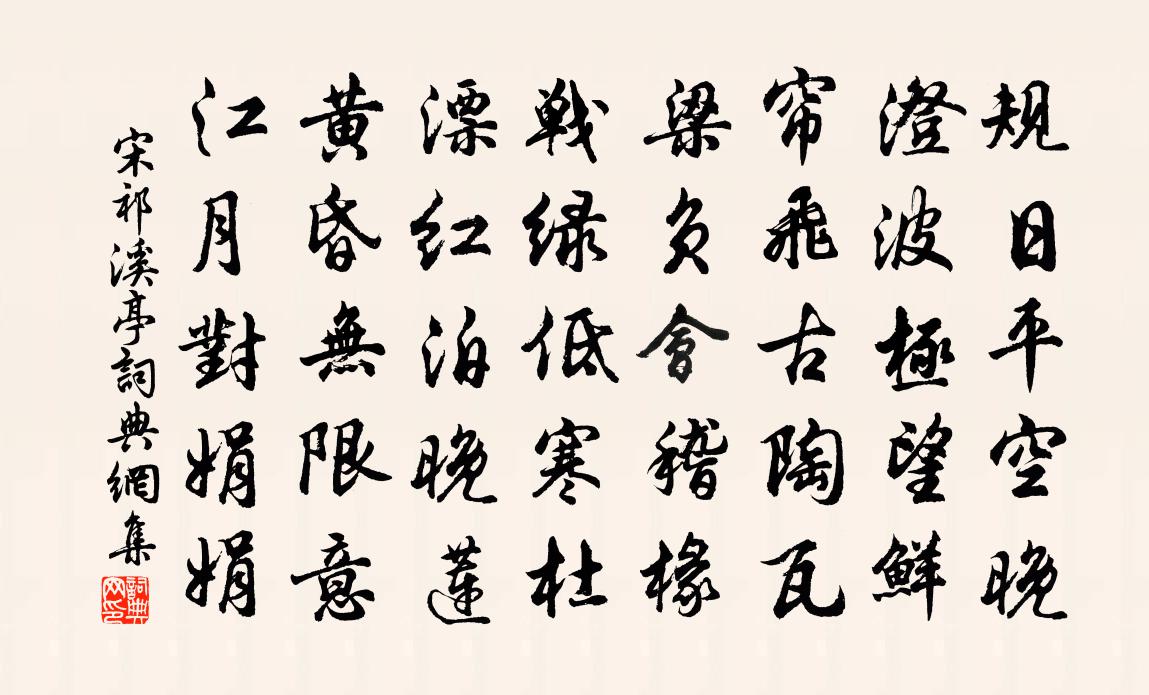 規日平空晚
澄波極望鮮
帘飛古陶瓦
梁負會稽椽
戰綠低寒杜
漂紅泊晚蓮
黃昏無限意
江月對娟娟
宋祁溪亭詞典網集
詞典网印